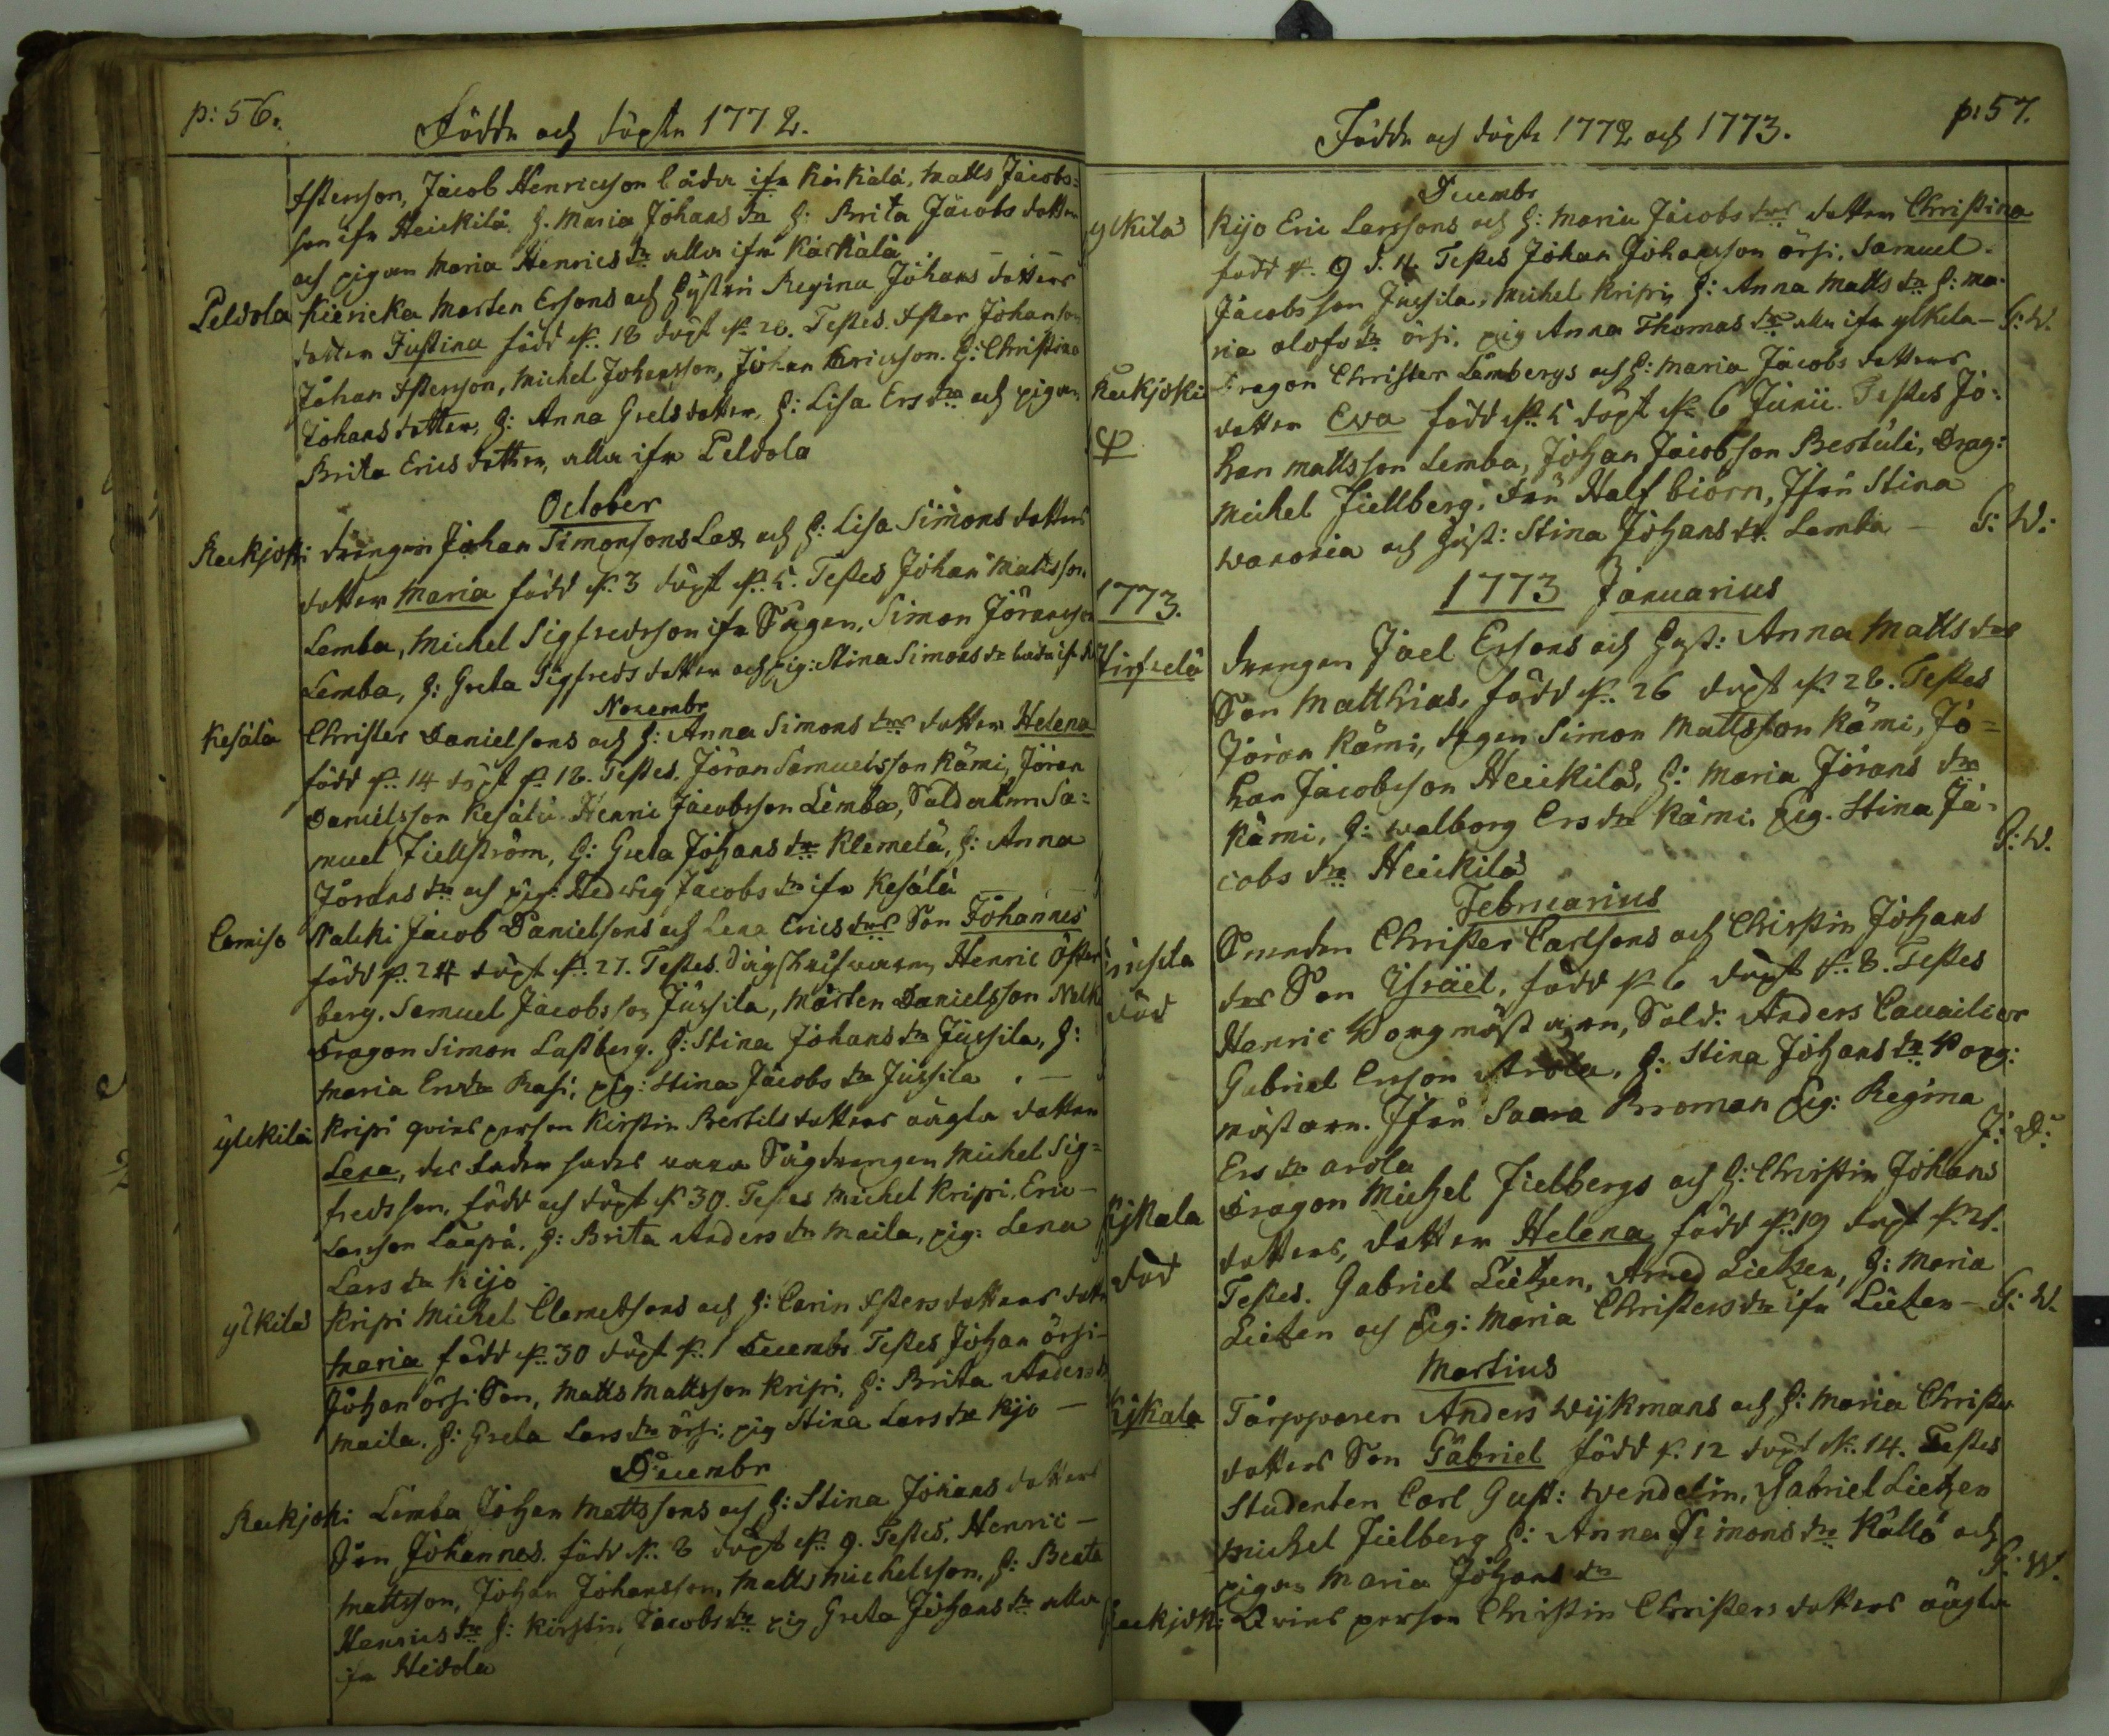 p: 56.
Födde och döpte 1772.
Isterson, Jacob Henricsson båda ifr Karkala, Matts Jacobs=
son ifr Heickilä, H. Maria Johans dr H: Brita Jacobs dotter
och pigan Maria Henrics dr alla ifr Karkala
Peldola Kiericka Morten Ersons och Hustru Regina Johans dotters
dotter Justina född d. 18 döpt d. 20. Testes. Ister Johanson
Johan Isterson, Michel Johansson, Johan Ericsson. H: Christina
Johans dotter, H: Anna Grels dotter, H: Lisa Ers dr och pigan
Brita Erics dotter, alla ifr Peldola
October
Reckjoki drengen Johan Simonsons Lax och H: Lisa Simons dotters
dotter Maria född d. 3 döpt d. 5. Testes Johan Mattsson
Lemba, Michel Sigfredsson ifr Sågen, Simon Jöransson
Lemba, H: Greta Sigfreds dotter och pig: Stina Simons dr båda ifr
Novembr
Kesälä Christer Danielsons och H: Anna Simons drs dotter Helena
född d. 14 döpt d. 18. Testes. Jöran Samuelsson Kämi, Jöran
Danielsson Kesälä Henric Jacobsson Lemba, Soldaten Sa=
muel Fiellström, H: Greta Johans dr Klemelä, H: Anna
Jörans dr och pig: Hedwig Jacobs dr ifr Kesälä
Comiso Nalcki Jacob Danielsons och Lena Erics drs Son Johannes
född d. 24 döpt d. 27. Testes. Henric Öster
berg. Samuel Jacobsson Jussila, Mårten Danielsson Nalk
Dragon Simon Lastberg. H: Stina Johans dr Jussila, H:
Maria Ersdr Rasi, pig: Stina Jacobs dr Jussila
ylckilä Kripi qvins person Kirstin Bertils dotters oägta dotter
Lena, des fader sades vara Sågdrengen Michel Sig=
fredsson, född och döpt d 30. Testes Michel Kripi, Eric
Larsson Laupa. H: Brita Anders dr Maila, pig: Lena
Lars dr Kijo
ylkilä Kripi Michel Clemetsons och H: Carin Isters dotters dotter
Maria född d. 30 döpt d. 1 Decembr Testes Johan örsi
Johan örsi Son, Matts Mattsson Kripi, H: Brita Anders dr
Maila. H: Greta Lars dr örsi, pig Stina Lars dr Kijo
Decembr
Reckjoki Lemba Johan Mattssons och H: Stina Johans dotters
Son Johannes. född d. 8 döpt d. 9. Testes, Henric
Mattsson, Johan Johansson, Matts Michelsson, H: Beata
Henrics dr H: Kirstin Jacobs dr pig Greta Johans dr alla
ifr Heidola
p: 57.
Födde och döpte 1772 och 1773.
Decembr
ylkilä Kijo Eric Larssons och H: Maria Jacobs drs dotter Christina
född d. 9 d. 11. Testes Johan Johansson örsi, Samuel
Jacobsson Jussila, Michel Kripi, H: Anna Matts dr H: Ma-
ria olofs dr örsi, pig Anna Thomas dr alla ifr ylkila - G: W.
Reckjoki Dragon Christer Lembergs och H: Maria Jacobs dotters
dotter Eva född d. 5 döpt d. 6 Junii. Testes Jo-
han Mattsson Lemba, Johan Jacobson Bertuli, Drag:
Michel Fiellberg, Fru Halfbiörn, Jfru Stina
Wanonia och Hust: Stina Johans dr. Lemba - G: W:
1773.
1773 Januarius
Hirfselä drengen Joel Ersons och Hust: Anna Matts drs
Son Matthias, född d. 26 döpt d. 28. Testes
Jöran Kämi, drgen Simon Mattsson Kämi, Jo=
han Jacobsson Heickilä, H: Maria Jörans dr
Kämi, H: Walborg Ers dr Kämi. Pig. Stina Ja-
cobs dr Heickilä G: W.
Februarius
Jussila Smeden Christer Carlsons och Christin Johans
död drs Son Israël, född d. 6 döpt d. 8. Testes
Henric Borgmästaren, Sold: Anders Cavailier
Gabriel Ersson Arola, H: Stina Johans dr Borg:
mästaren. Jfru Saara Broman Pig: Regina
Ers dr arola J: D:
Kijkala Dragon Michel Fielbergs och H: Christin Johans
död dotters, dotter Helena född d. 19 döpt d. 21.
Testes. Gabriel Lietzen, Arved Lietzen, H: Maria
Lietzen och Pig: Maria Christers dr ifr Lietzen - G: W.
Martius
Kijkala Torpparen Anders Wijkmans och H: Maria Christer
dotters Son Gabriel född d. 12 döpt d. 14. Testes
Studenten Carl Gust: Wendelin, Gabriel Lietzen
Michel Fielberg H: Anna Simons dr Källö och
pigan Maria Johans dr G: W.
Reckjoki Qvins person Christin Christers dotters oägta